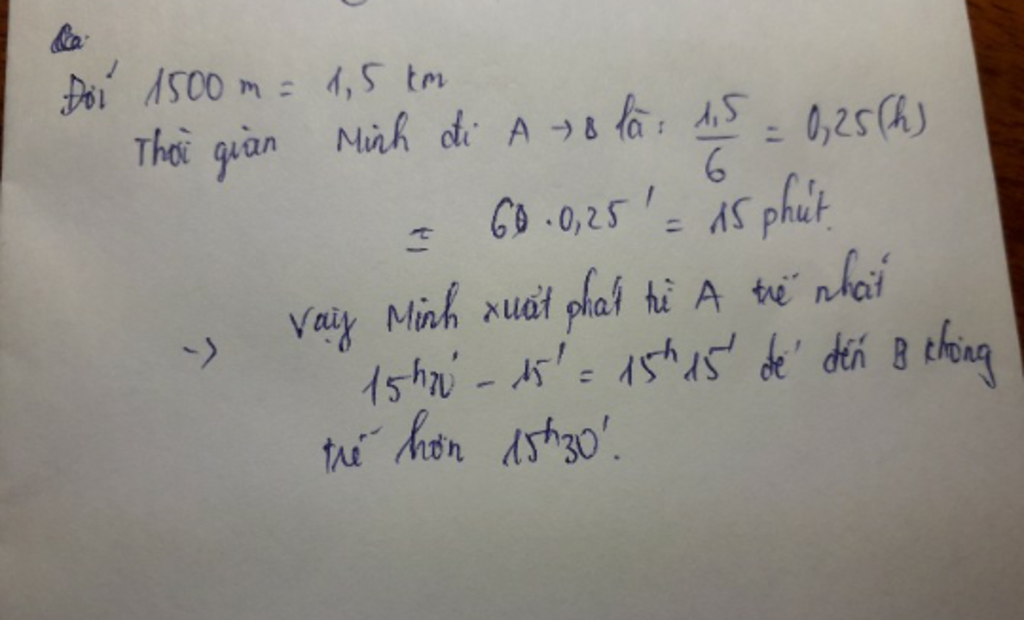 Đổi 1500 m = 1,5 km
Thời gian Minh đi A → B là: 1,5/6 = 0,25(h)
= 60 . 0,25' = 15 phút.
-> Vậy Minh xuất phát từ A trễ nhất
15h30' - 15' = 15h15' để đến B không
trễ hơn 15h30'.